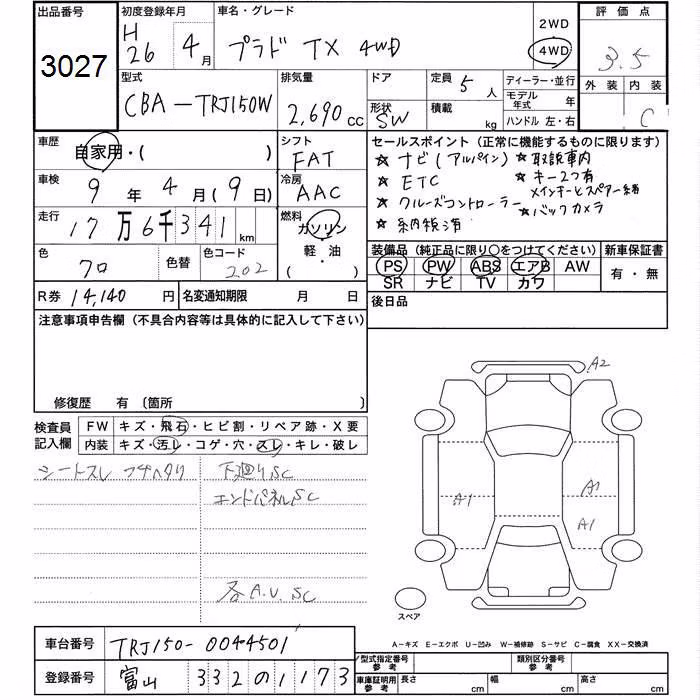 出品番号 初度登録年月 車名・グレード 2WD 評価点
3027 H26 4月 プラド TX 4WD 4WD 3.5
型式 排気量 ドア 定員 5人 ディーラー・並行 外装 内装
CBA-TRJ150W 2,690cc 形状 SW 積載 kg モデル年式 年 C
ハンドル 左・右
車歴 自家用・( ) シフト FAT セールスポイント (正常に機能するものに限ります)
☆ナビ(アルパイン) ☆取説車内
車検 9年4月(9日) 冷房 AAC ☆ETC ☆キー2つ有
メインキーとスペアー緒
☆クルーズコントローラー ☆バックカメラ
走行 17万6千341km 燃料 ガソリン ☆納税済
軽・油
( )
色 クロ 色替 色コード 202
装備品 (純正品に限り〇をつけてください) 新車保証書
PS PW ABS エアB AW 有・無
SR ナビ TV カワ
R券 14,140円 名変通知期限 月 日 後日品
注意事項申告欄 (不具合内容等は具体的に記入して下さい)
修復歴 有 〔箇所
検査員記入欄 FW キズ・飛石・ヒビ割・リペア跡・X要
内装 キズ・汚レ・コゲ・穴・スレ・キレ・破レ
シートスレ フチヘタリ 下廻りSC
エンドパネルSC
各A.U.SC
A2
A1 A1
A1
スペア
A-キズ E-エクボ U-凹み W-補修跡 S-サビ C-腐食 XX-交換済
車台番号 TRJ150-0044501
登録番号 富山 332 の 1173
型式指定番号 参考 類別区分番号 参考
車庫証明用 参考 長さ cm 幅 cm 高さ cm